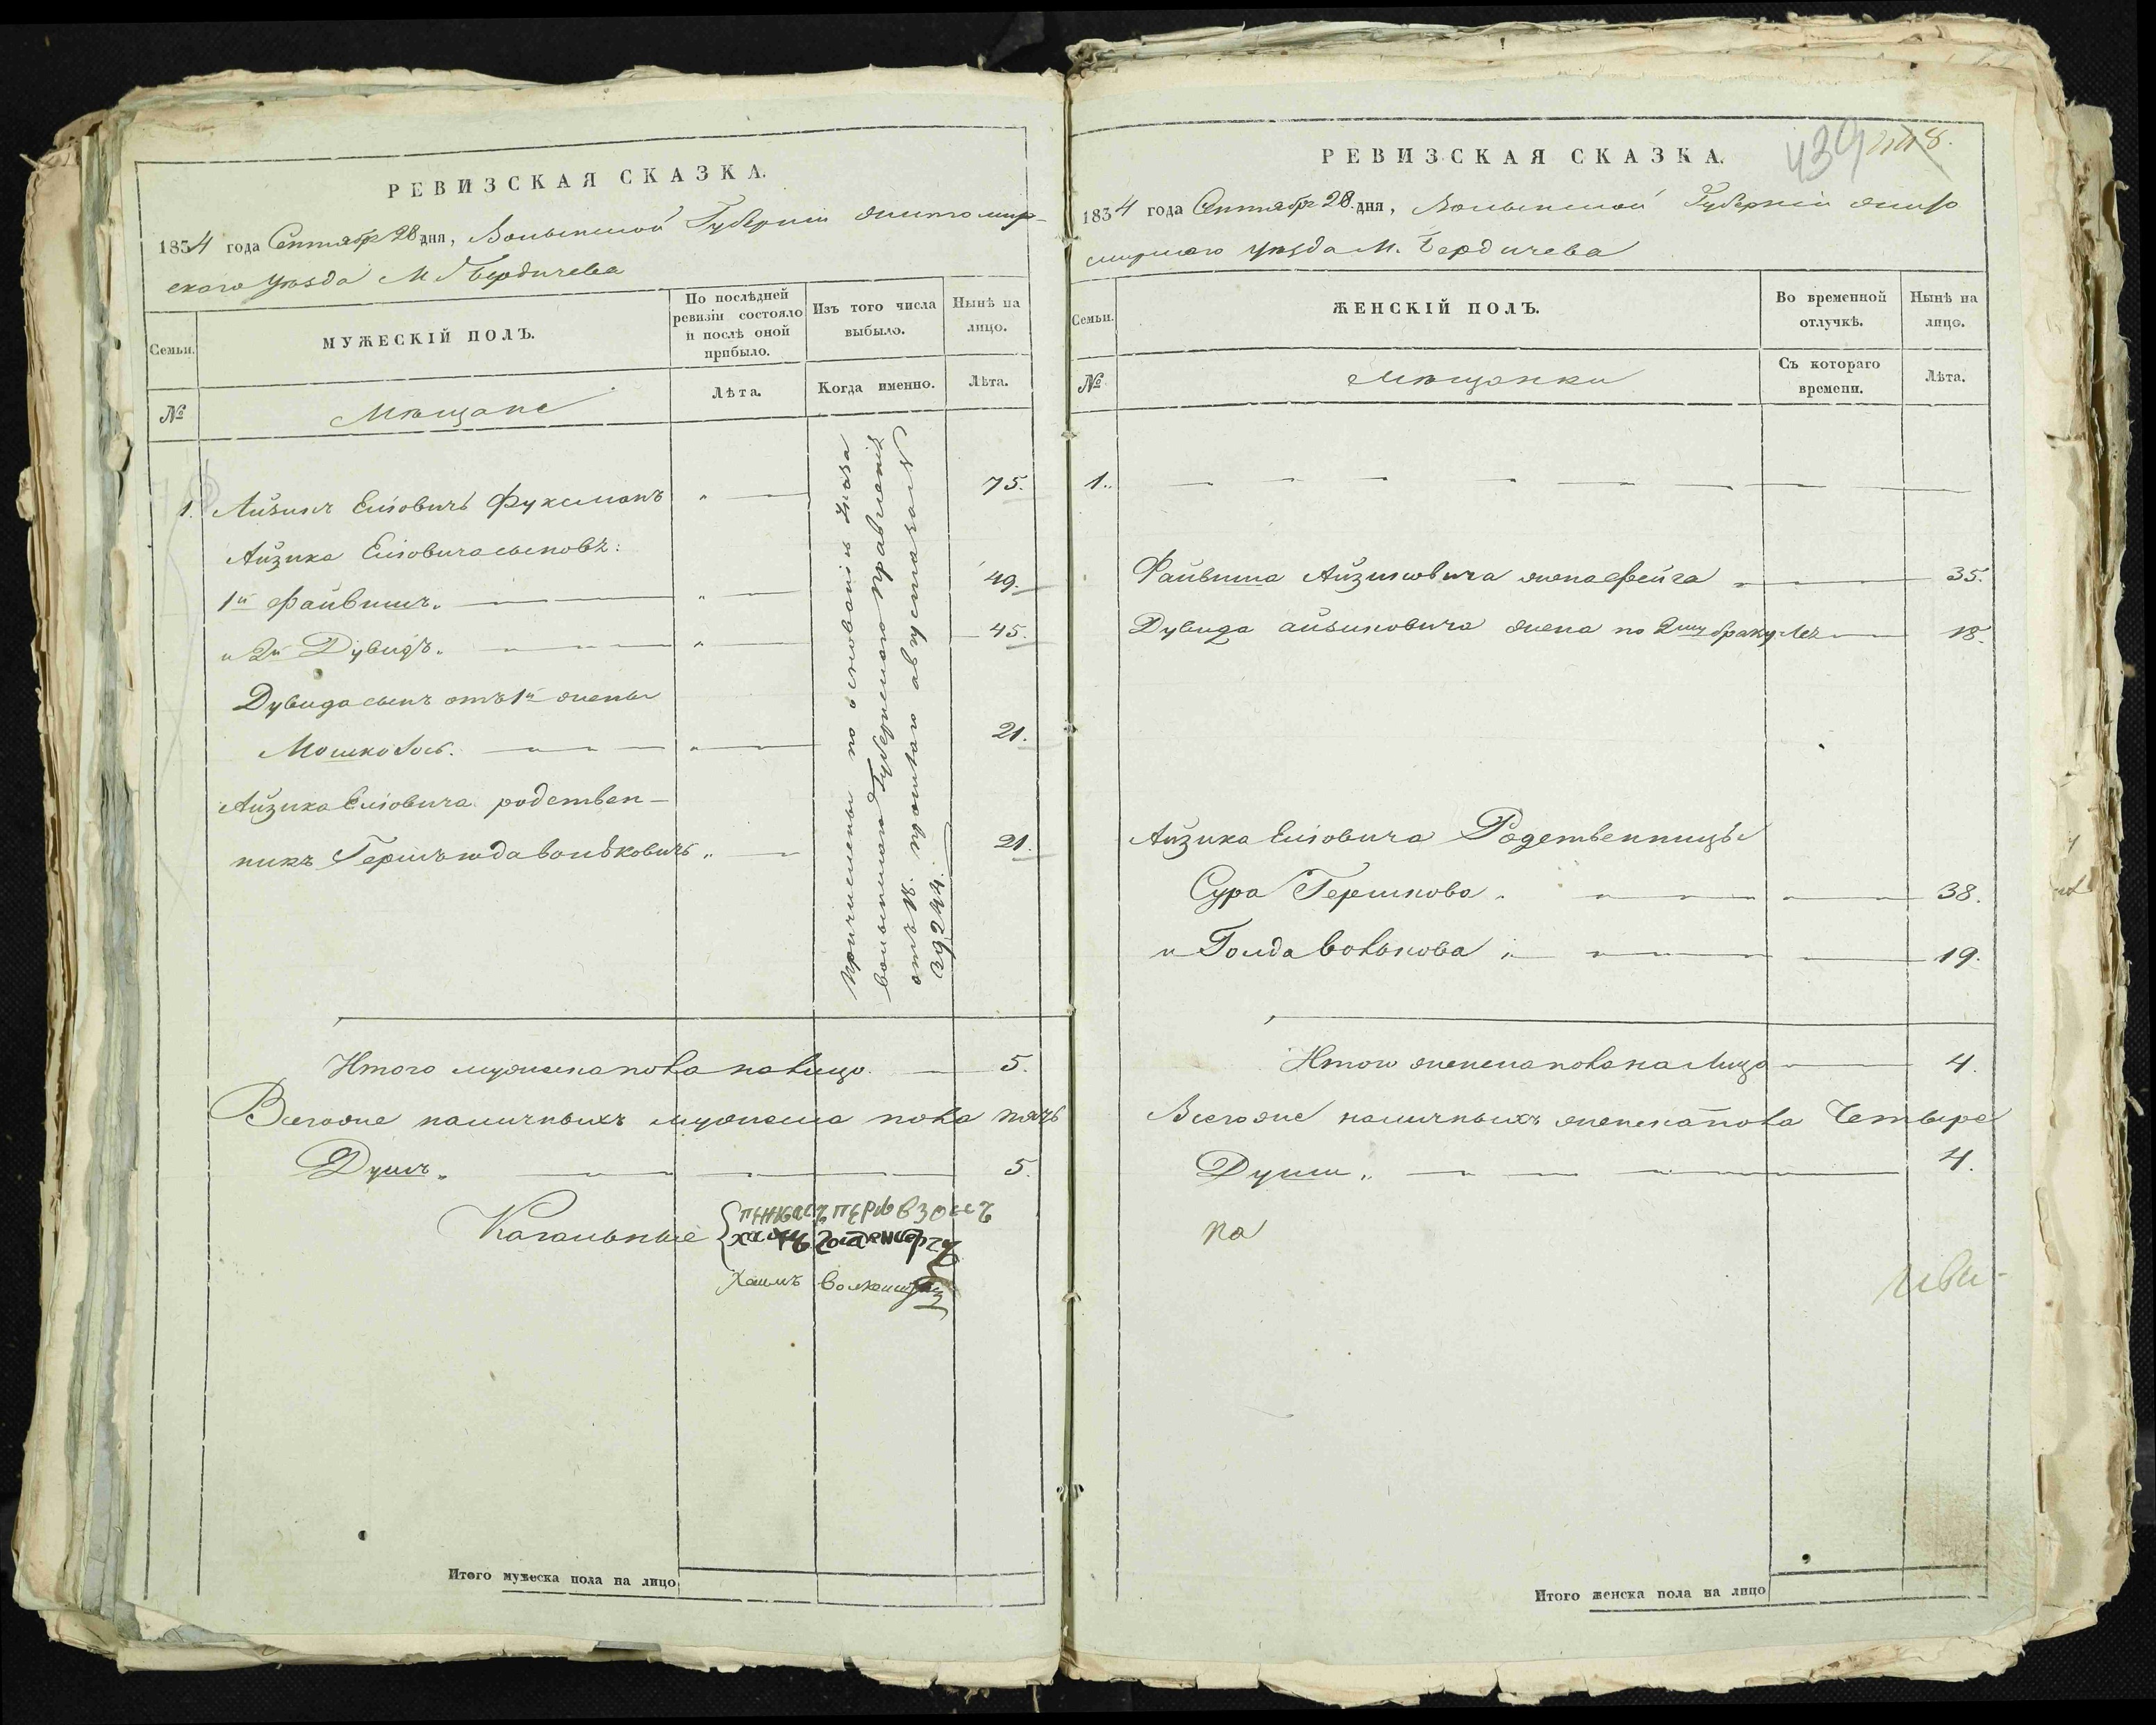 РЕВИЗСКАЯ СКАЗКА.
1834 года Сентября 28 дня, Волынской Губерніи Житомир-
скаго Уѣзда М. Бердичева
Семьи.
МУЖЕСКІЙ ПОЛЪ.
По послѣдней ревизіи состояло и послѣ оной прибыло.
Изъ того числа выбыло.
Нынѣ на лицо.
№
Мѣщане
Лѣта.
Когда именно.
Лѣта.
1. Айзикъ Еліовичъ Фуксманъ " — 75.
Айзика Еліовича сыновѣ:
1й Файвишъ. — " — 49.
и 2й Дувидъ. — " — 45.
Дувида сынъ отъ 1й жены
Мошко Іось. — " — 21.
Айзика Еліовича родствен-
никъ Гершъ Іода Вольковичъ " — 21.
Причислены по основаніи Указа
Волынскаго Губернскаго Правленія
отъ 18. прошлаго августа за №
29244.
Итого мужска пола на лицо. — 5.
Всего же наличныхъ мужеска пола пять
Душъ. — 5.
Кагальные
Хаимъ
Итого мужеска пола на лицо
439
РЕВИЗСКАЯ СКАЗКА.
1834 года Сентября 28. дня, Волынской Губерніи Жито
мирскаго Уѣзда М. Бердичева
Семьи.
ЖЕНСКІЙ ПОЛЪ.
Во временной отлучкѣ.
Нынѣ на лицо.
№
Мѣщанки
Съ котораго времени.
Лѣта.
1.
Файвиша Айзиковича жена Фейга " — 35.
Дувида Айзиковича жена по 2му браку Лея — 18.
Айзика Еліовича Родственницы
Сура Гершкова. — 38.
и Голда Волькова — 19.
Итого женска пола на Лицо — 4.
Всего же наличныхъ женска пола Четыре
Души. — 4.
на
Итого женска пола на лицо